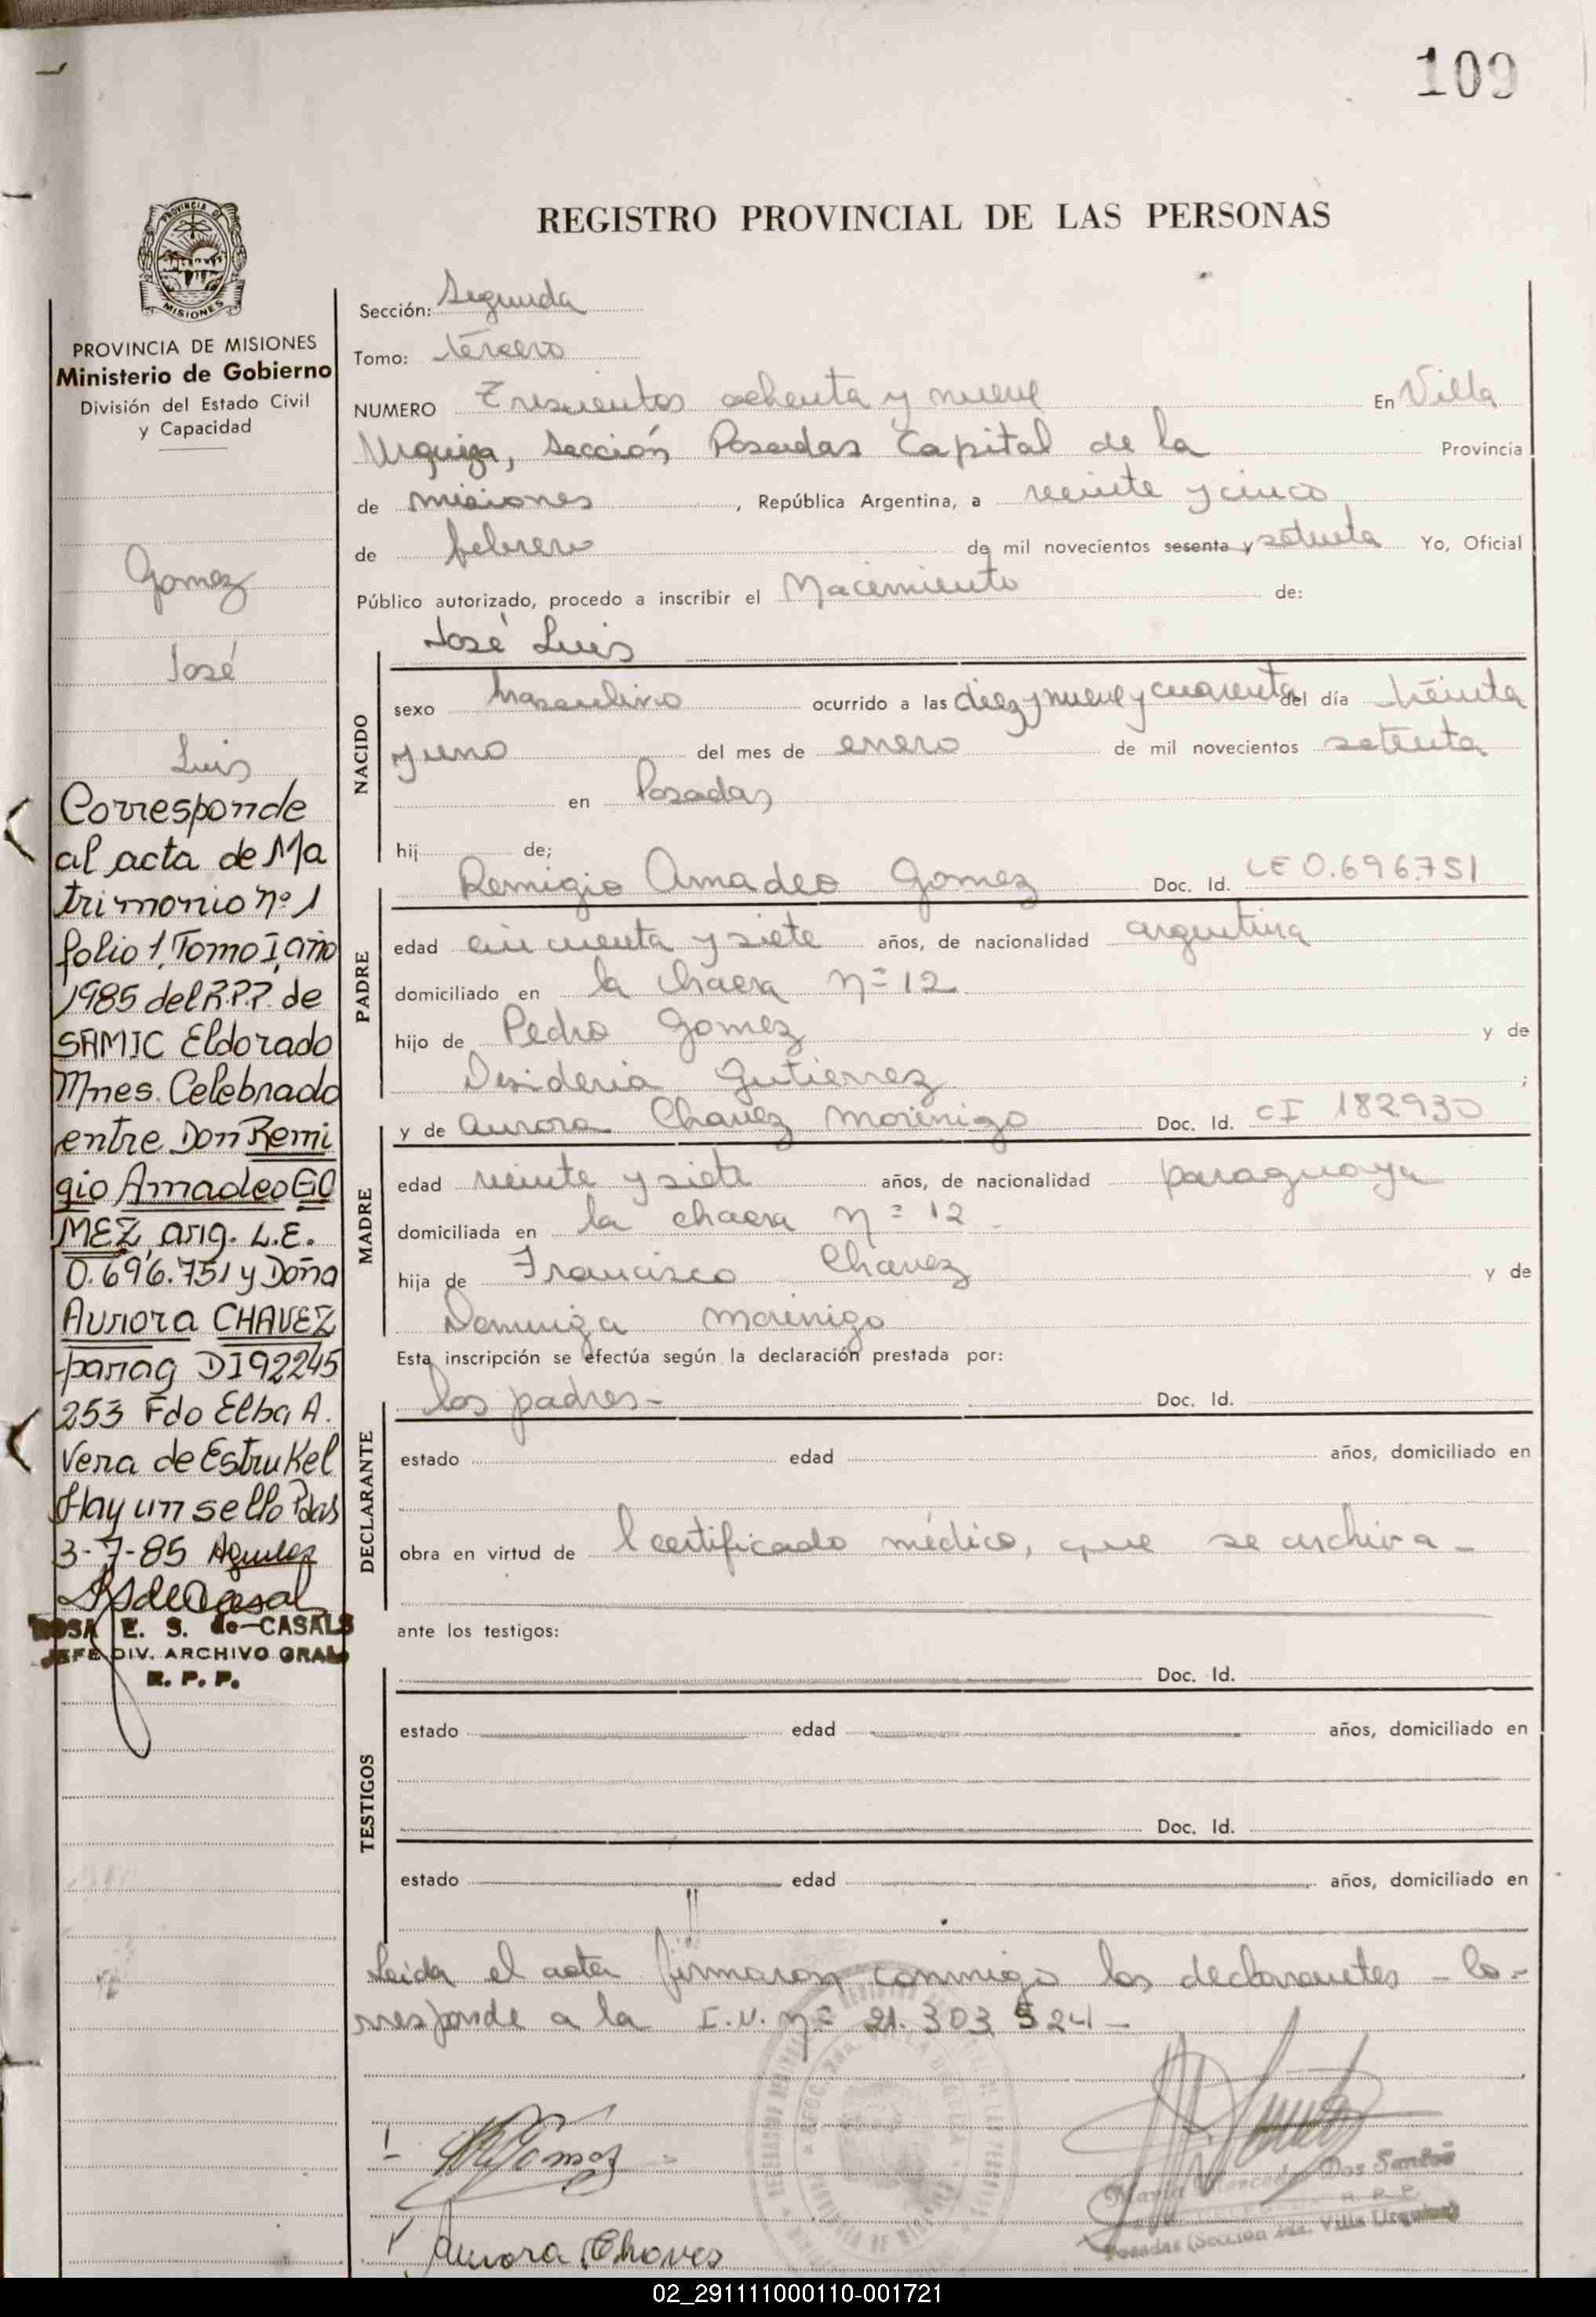 109
REGISTRO PROVINCIAL DE LAS PERSONAS
PROVINCIA DE MISIONES
PROVINCIA DE MISIONES
Ministerio de Gobierno
División del Estado Civil
y Capacidad
Gomez
José
Luis
Corresponde
al acta de Ma
trimonio nº 1
folio 1, Tomo I, año
1985 del R.P.P. de
SAMIC Eldorado
Mnes. Celebrado
entre Don Remi
gio Amadeo GO
MEZ arg. L.E.
0.696.751 y Doña
Aurora CHAVEZ
parag DI 92245
253 Fdo Elba A.
Vera de Estrukel
Hay un sello Pdas
3-7-85
ROSA E. S. de CASALS
JEFE DIV. ARCHIVO GRAL
R. P. P.
Sección: Segunda
Tomo: tercero
NUMERO Trescientos ochenta y nueve En Villa
Urquiza, Sección Posadas Capital de la Provincia
de misiones, República Argentina, a veinte y cinco
de febrero de mil novecientos sesenta y setenta Yo, Oficial
Público autorizado, procedo a inscribir el Nacimiento de:
José Luis
NACIDO
sexo masculino ocurrido a las diez y nueve y cuarenta del día treinta
y uno del mes de enero de mil novecientos setenta
en Posadas
hij de;
Remigio Amadeo Gomez Doc. Id. LE 0.696.751
PADRE
edad cincuenta y siete años, de nacionalidad argentina
domiciliado en la chacra nº 12
hijo de Pedro Gomez y de
Desideria Gutierrez ;
y de Aurora Chavez Morinigo Doc. Id. CI 182.930
MADRE
edad veinte y siete años, de nacionalidad paraguaya
domiciliada en la chacra nº 12
hija de Francisco Chavez y de
Morinigo
Esta inscripción se efectúa según la declaración prestada por:
los padres- Doc. Id.
DECLARANTE
estado edad años, domiciliado en
obra en virtud de l certificado médico, que se archiva -
ante los testigos:
Doc. Id.
TESTIGOS
estado edad años, domiciliado en
Doc. Id.
estado edad años, domiciliado en
Leida el acta firmaron conmigo los declarantes - Co-
rresponde a la I.U. nº 21.303 524 -
Aurora Chaves
Dos Santos
R. P. P.
Posadas (Sección 2da. Villa Urquiza)
02_291111000110-001721